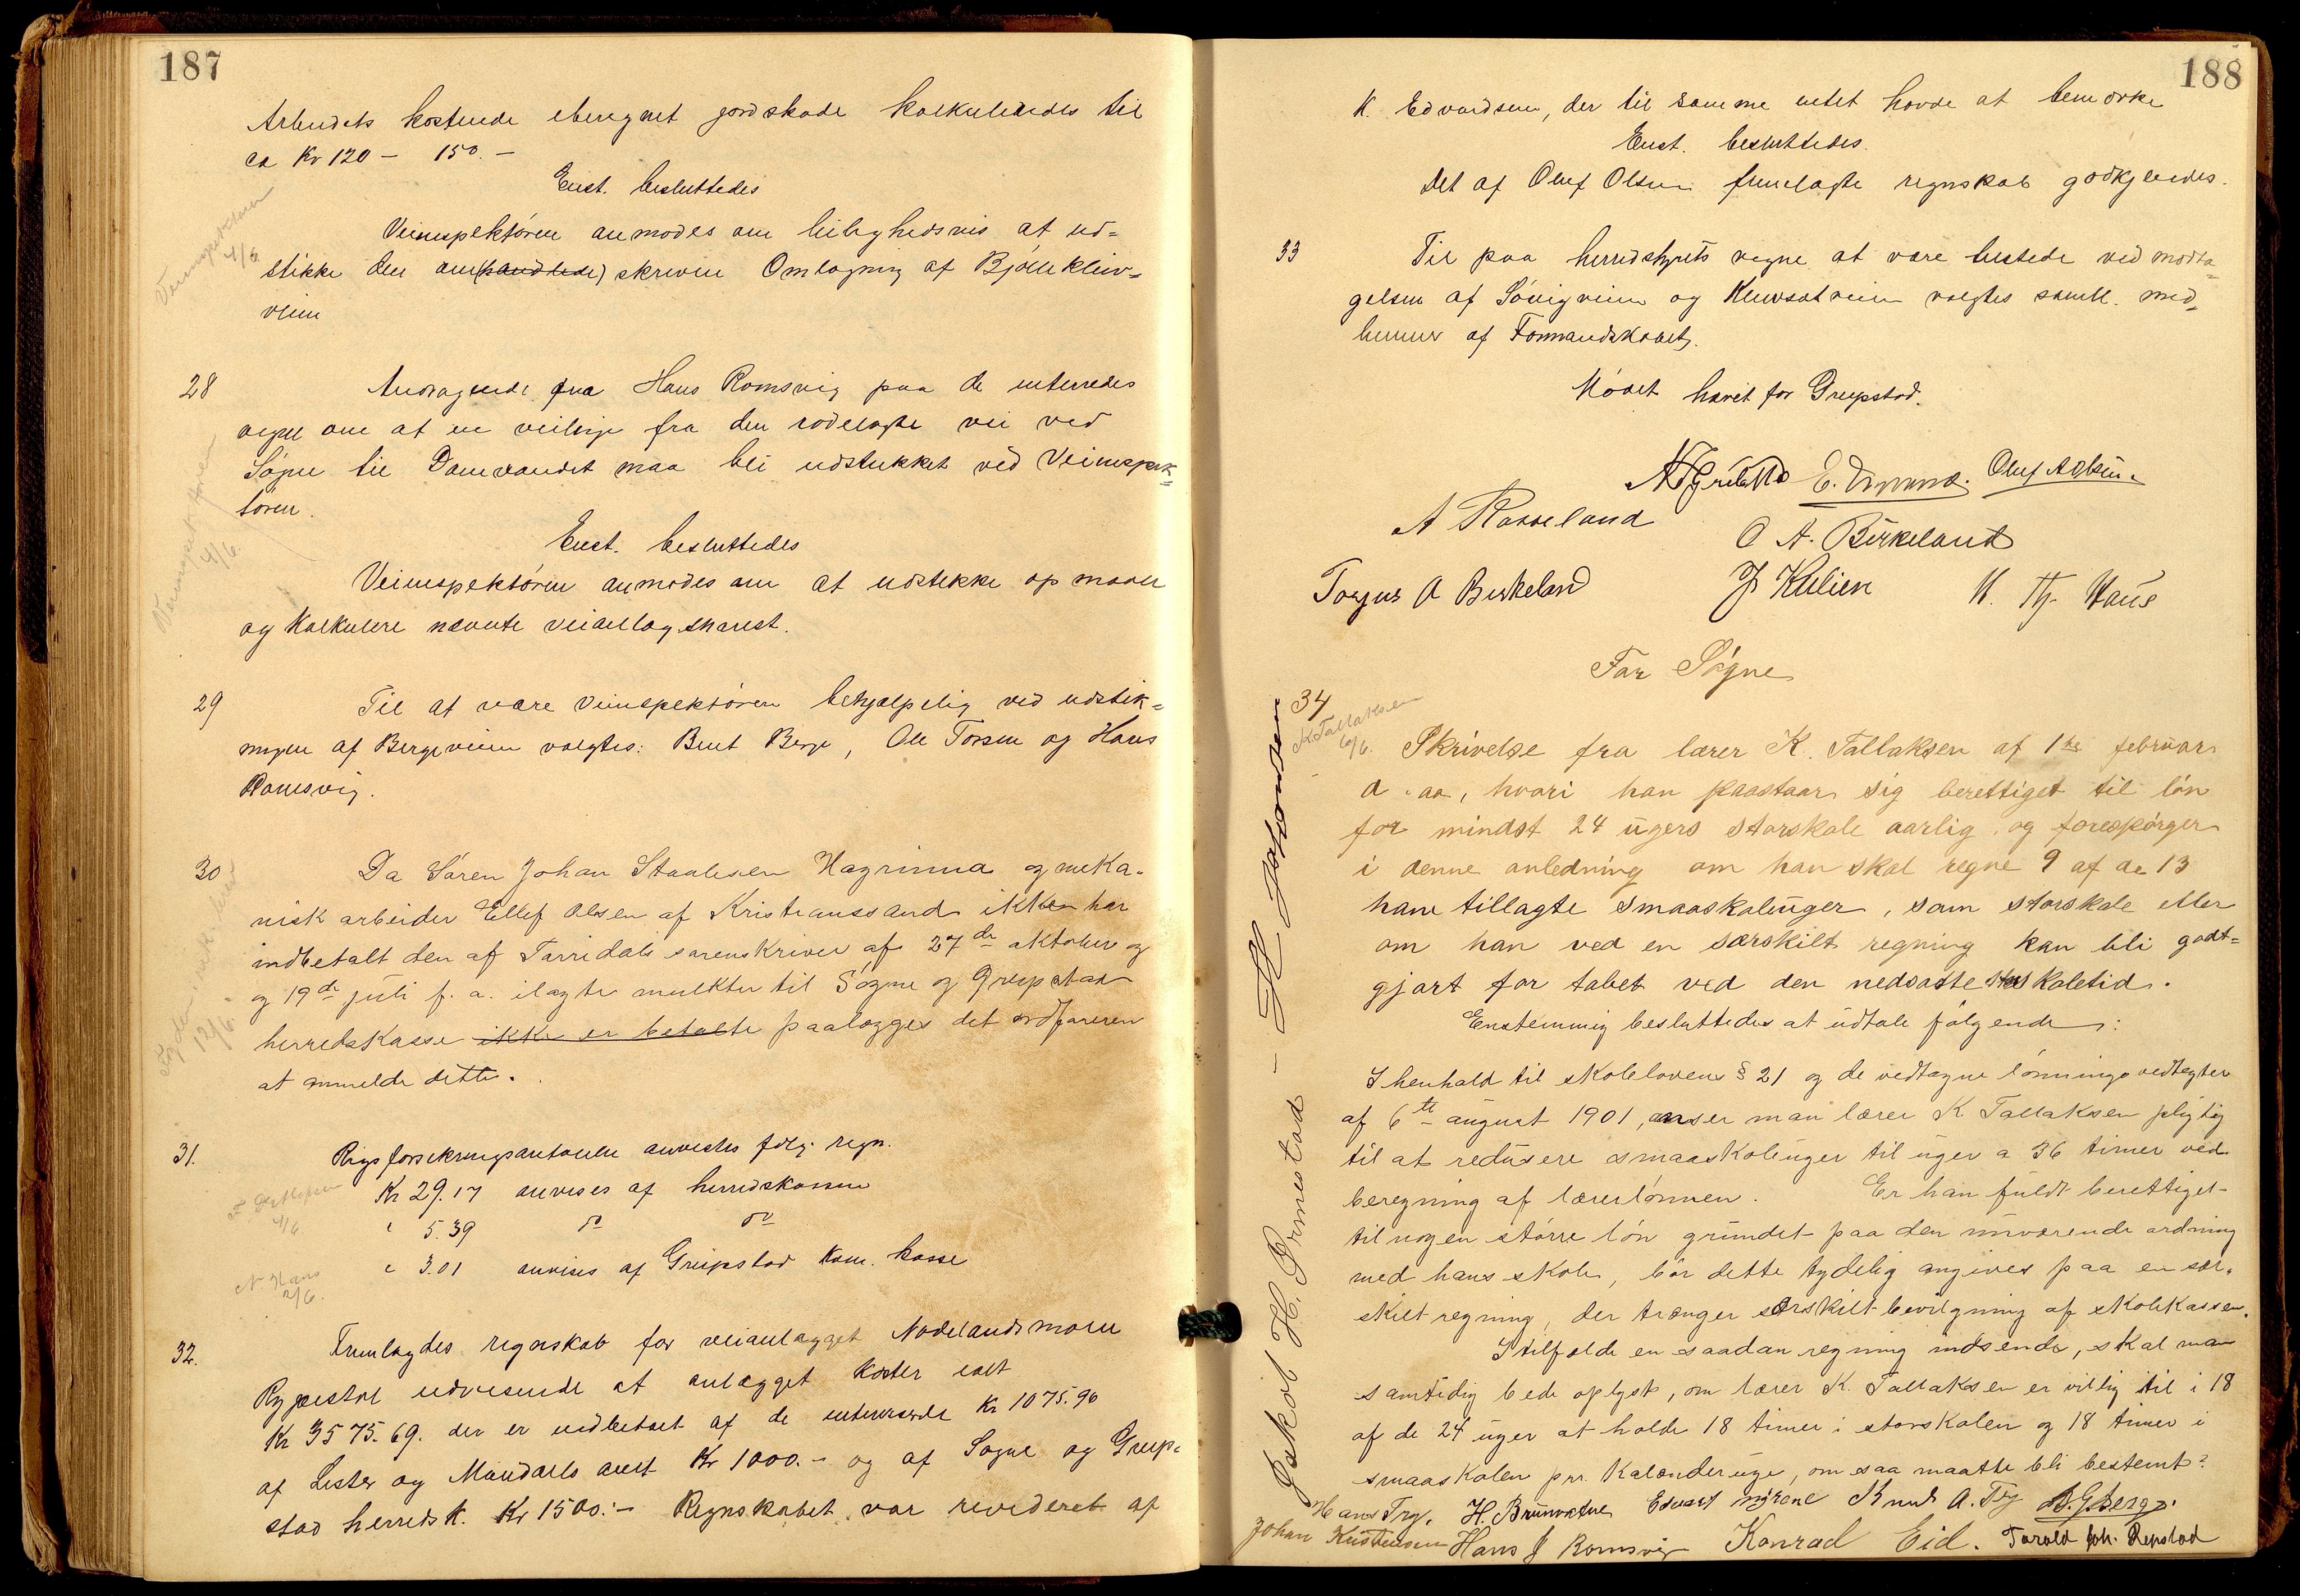 187
Arbeidets kostende uberegnet jordskade kalkuleredes til
ca Kr 120 - 150.-
Enst. besluttedes
Veiinspektøren anmodes om leilighedsvis at ud-
stikke den om(handlede)skrevne Omlægning af Bjønklev-
veien
Veiinspektøren
4/6
28
Andragende fra Hans Romsvig paa de interredes
vegne om at en veilinje fra den rodelagte vei ved
Søgne til Damvandet maa bli udstukket ved Veiinspek-
tøren.
Enst. besluttedes
Veiinspektøren anmodes om at udstikke op maale
og kalkulere nævnte veianlæg snarest.
Veiinspektøren
4/6.
29
Til at være Veiinspektøren behjælpelig ved udstik-
ningen af Bergeveien valgtes: Bent Berge, Ole Torsen og Hans
Romsvig.
30
Da Søren Johan Staalesen Hagrinna og meka-
nisk arbeider Ellef Olsen af Kristianssand ikke har
indbetalt den af Torridals sorenskriver af 27de oktober og
og 19de juli f. a. ilagte mulkter til Søgne og Greipstad
herredskasse ikke er betalte paalægges det ordføreren
at anmelde dette.
12/6.
31.
Rigsforsikringsantalten anvistes følg. regn.
Kr 29.17 anvises af herredskassen
" 5.39 do do
" 3.01 anvises af Greipstad kom. kasse
4/6
N. Haus
2/6.
32.
Fremlagdes regnskab for veianlægget Nodelandsmoen
Rypestøl udvisende at anlægget koster ialt
Kr 3575.69. der er indbetalt af de interesserde Kr 1075.90
af Lister og Mandals amt Kr 1000.- og af Søgne og Greip-
stad herredsk. Kr 1500:- Regnskabet var revideret af
188
K. Edvardsen, der til samme intet havde at bemærke
Enst. besluttedes.
Det af Oluf Olsen fremlagte regnskab godkjendes.
33
Til paa herredstyrets vegne at være tilstede ved modta-
gelsen af Søvigveien og Kleivsetveien valgtes samtl. med-
lemmer af Formandskabet.
Mødet hævet for Greipstad.
Oluf A Olsen.
A Rosseland
O A. Birkeland
Torjus A Birkeland
J Kulien
N. Th. Haus
For Søgne
34
K Tallaksen
6/6.
Skrivelse fra lærer K. Tallaksen af 1ste februar
d. aa, hvori han paastaar sig berettiget til løn
for mindst 24 ugers storskole aarlig, og forespørger
i denne anledning om han skal regne 9 af de 13
ham tillagte smaaskoleuger, som storskole eller
om han ved en særskilt regning kan bli godt-
gjort for tabet ved den nedsatte storskoletid.
Enstemmig besluttedes at udtale følgende:
I henhold til skolelovens § 21 og de vedtagne lønningsvedtægter
af 6te august 1901, anser man lærer K. Tallaksen pligtig
til at redusere smaaskoleuger til uger a 36 timer ved
beregning af lærerlønnen. Er han fuldt berettiget
til nogen større løn grundet paa den nuværende ordning
med hans skole, bør dette tydelig angives paa en sær-
skilt regning, der trænger særskilt bevilgning af skolekassen.
I tilfælde en saadan regning indsendes, skal man
samtidig bede oplyst, om lærer K. Tallaksen er villig til i 18
af de 24 uger at holde 18 timer i storskolen og 18 timer i
smaaskolen pr. kalenderuge, om saa maatte bli bestemt?
Hans Try. H. Brunvatne Edvart Myrene Knud A. Try
Johan Kristensen Hans J Romsvig Konrad Eid. Torald Joh. Repstad